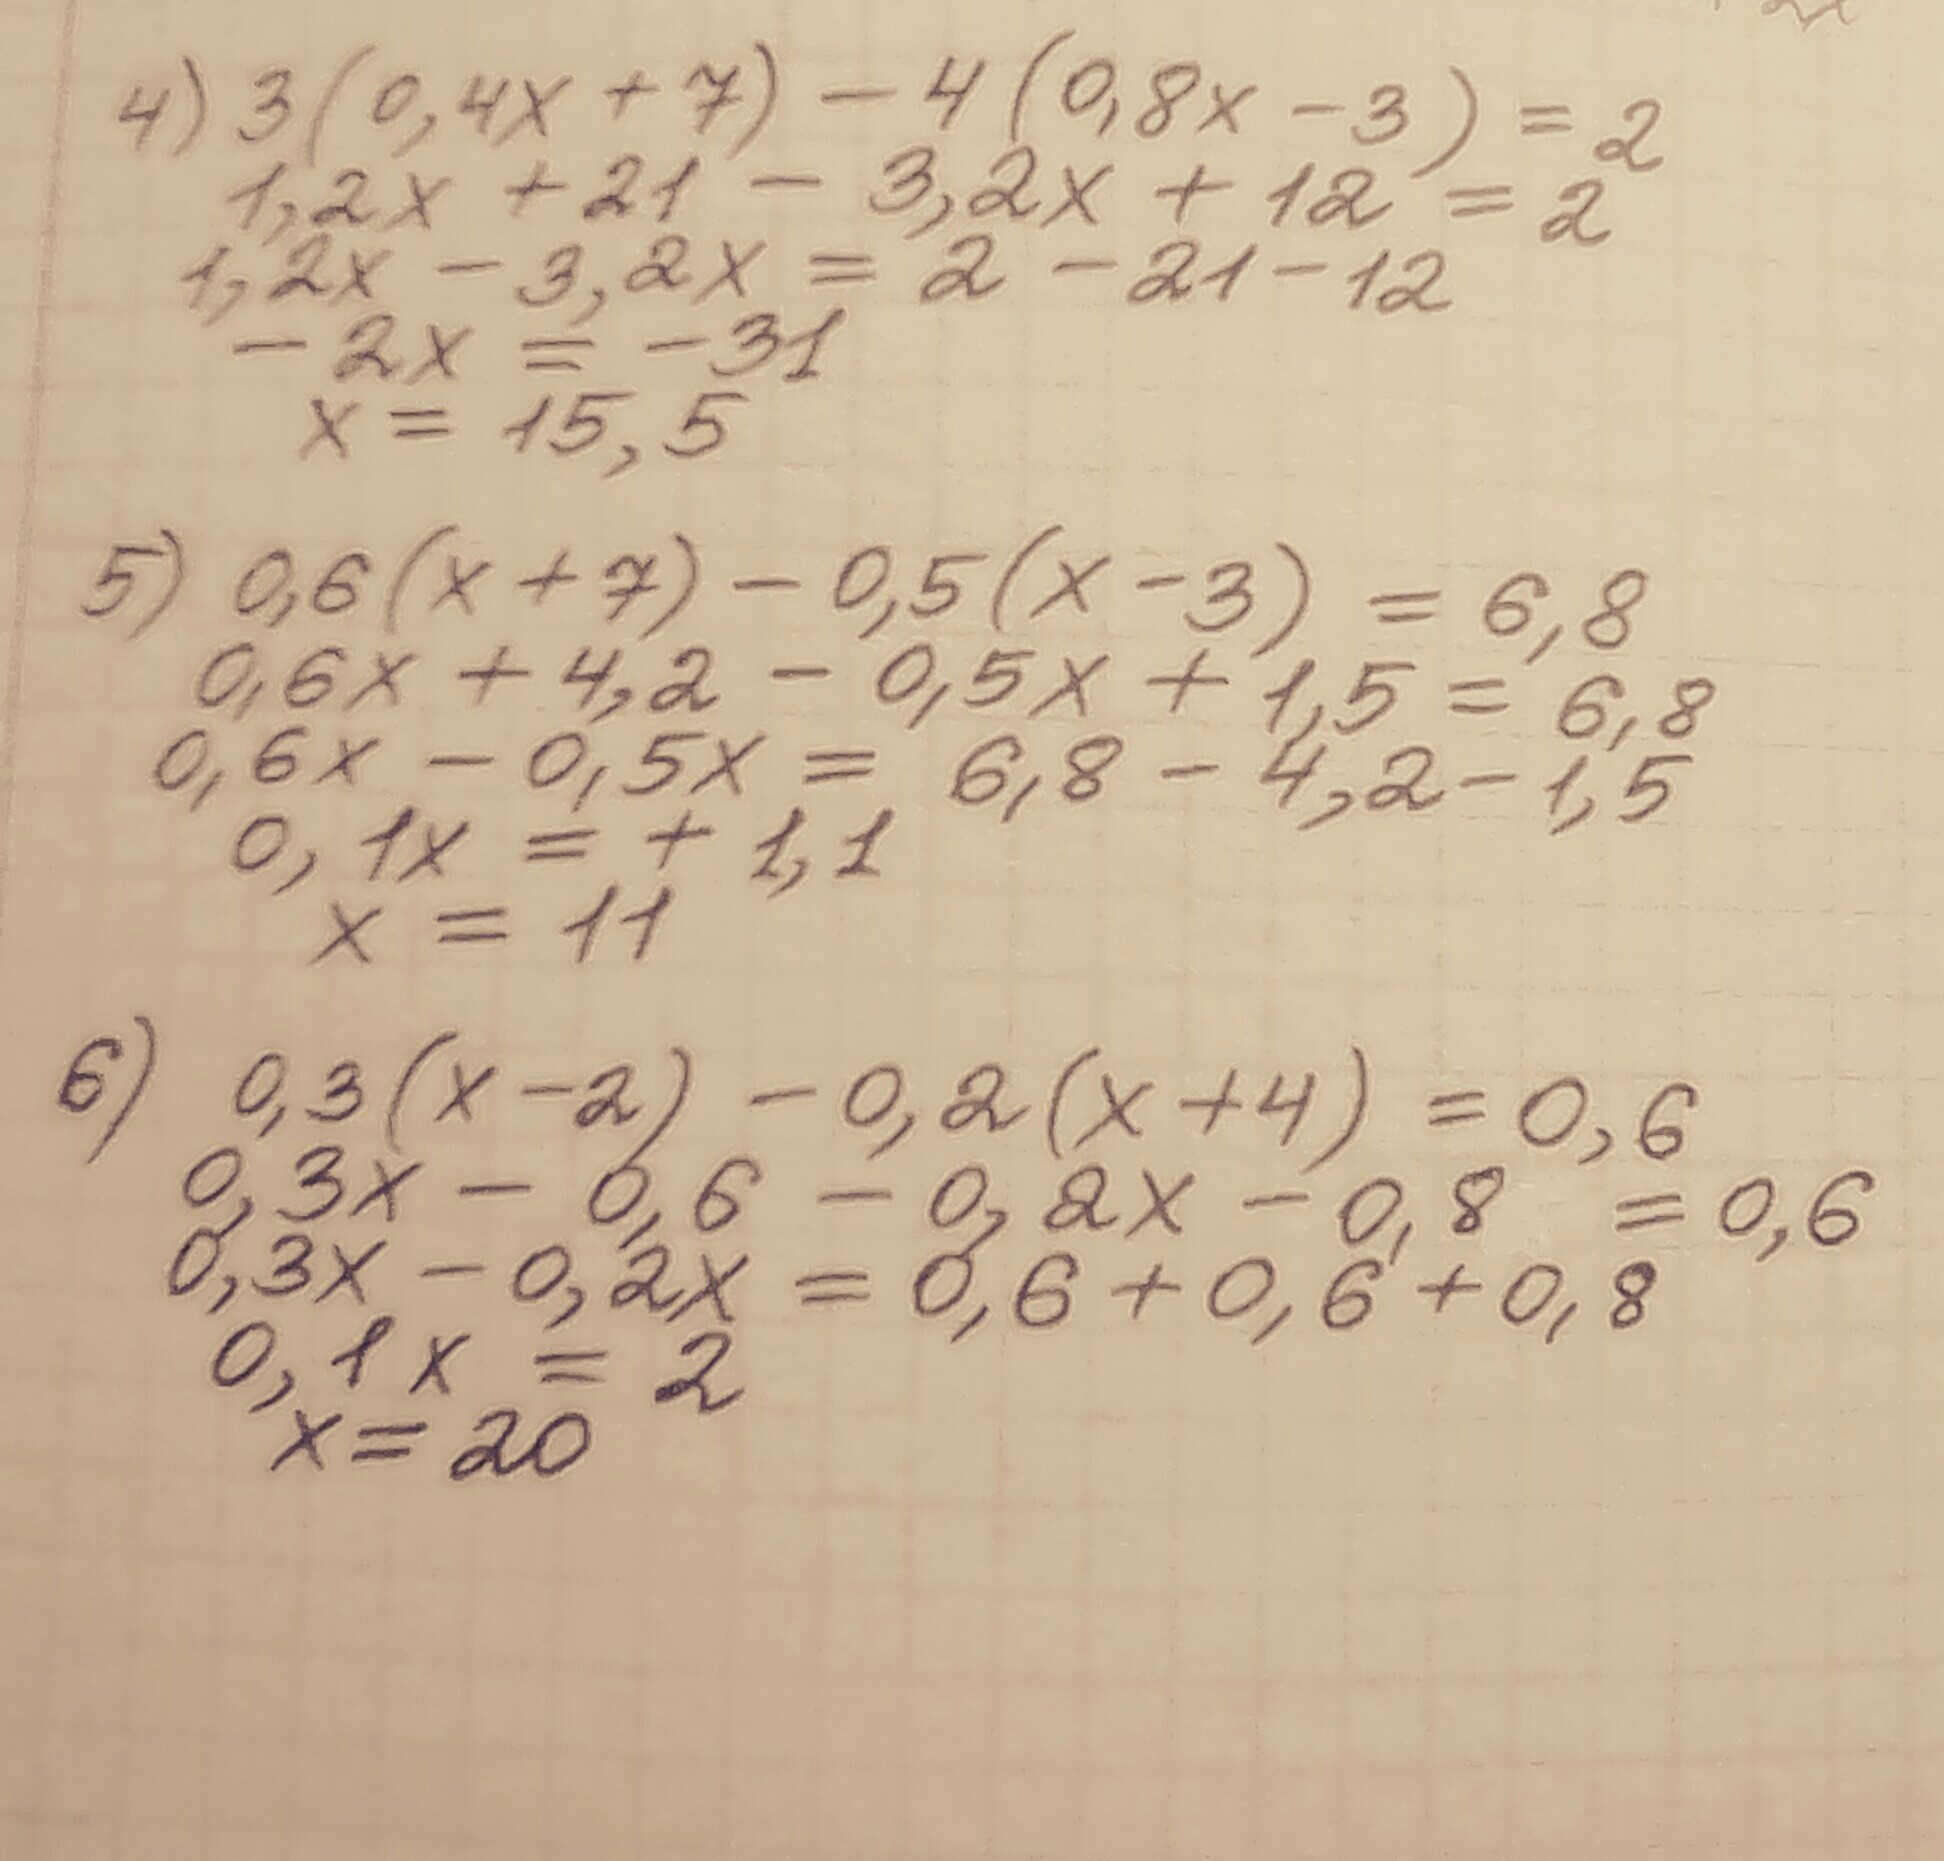 4) 3(0,4x + 7) - 4(0,8x - 3) = 2
1,2x + 21 - 3,2x + 12 = 2
1,2x - 3,2x = 2 - 21 - 12
- 2x = -31
x = 15,5
5) 0,6(x + 7) - 0,5(x - 3) = 6,8
0,6x + 4,2 - 0,5x + 1,5 = 6,8
0,6x - 0,5x = 6,8 - 4,2 - 1,5
0,1x = + 1,1
x = 11
6) 0,3(x - 2) - 0,2(x + 4) = 0,6
0,3x - 0,6 - 0,2x - 0,8 = 0,6
0,3x - 0,2x = 0,6 + 0,6 + 0,8
0,1x = 2
x = 20